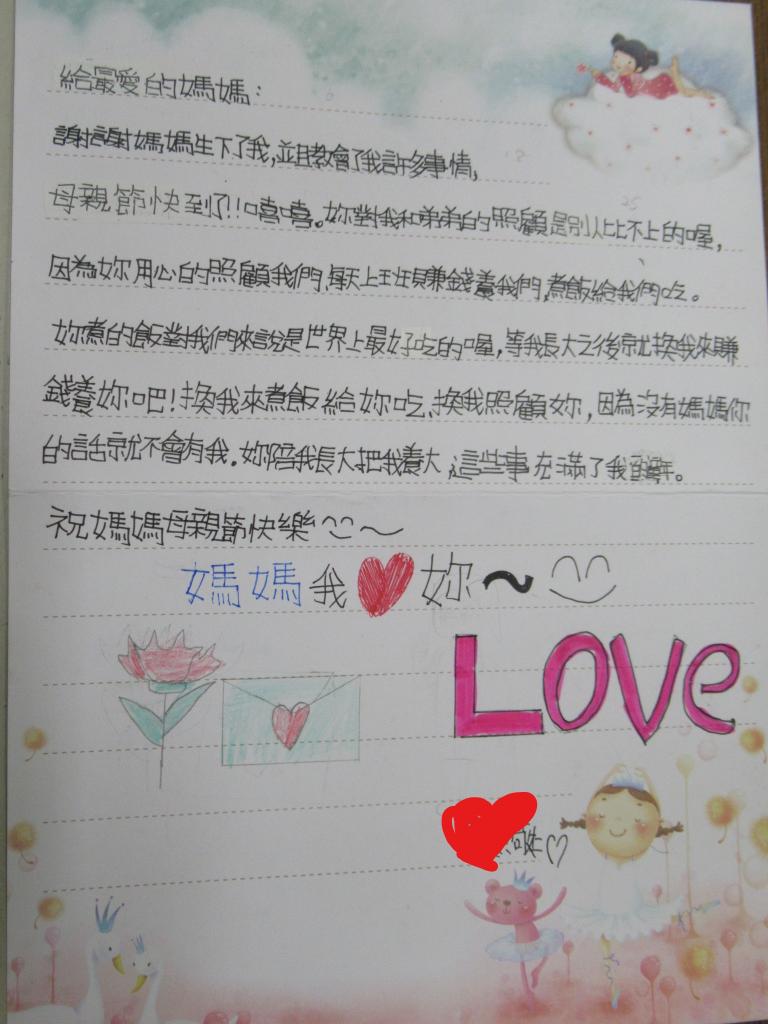 給最愛的媽媽:
謝謝媽媽生下了我,並且教會了我許多事情,
母親節快到了!!嘻嘻。妳對我和弟弟的照顧是別人比不上的喔,
因為妳用心的照顧我們,每天上班賺錢養我們,煮飯給我們吃。
妳煮的飯對我們來說是世界上最好吃的喔,等我長大之後就換我來賺
錢養妳吧!換我來煮飯給妳吃、換我照顧妳,因為沒有媽媽你
的話就不會有我。妳陪我長大把我養大,這些事充滿了我的童年。
祝媽媽母親節快樂
媽媽我❤妳~
LOVE
敬上♡